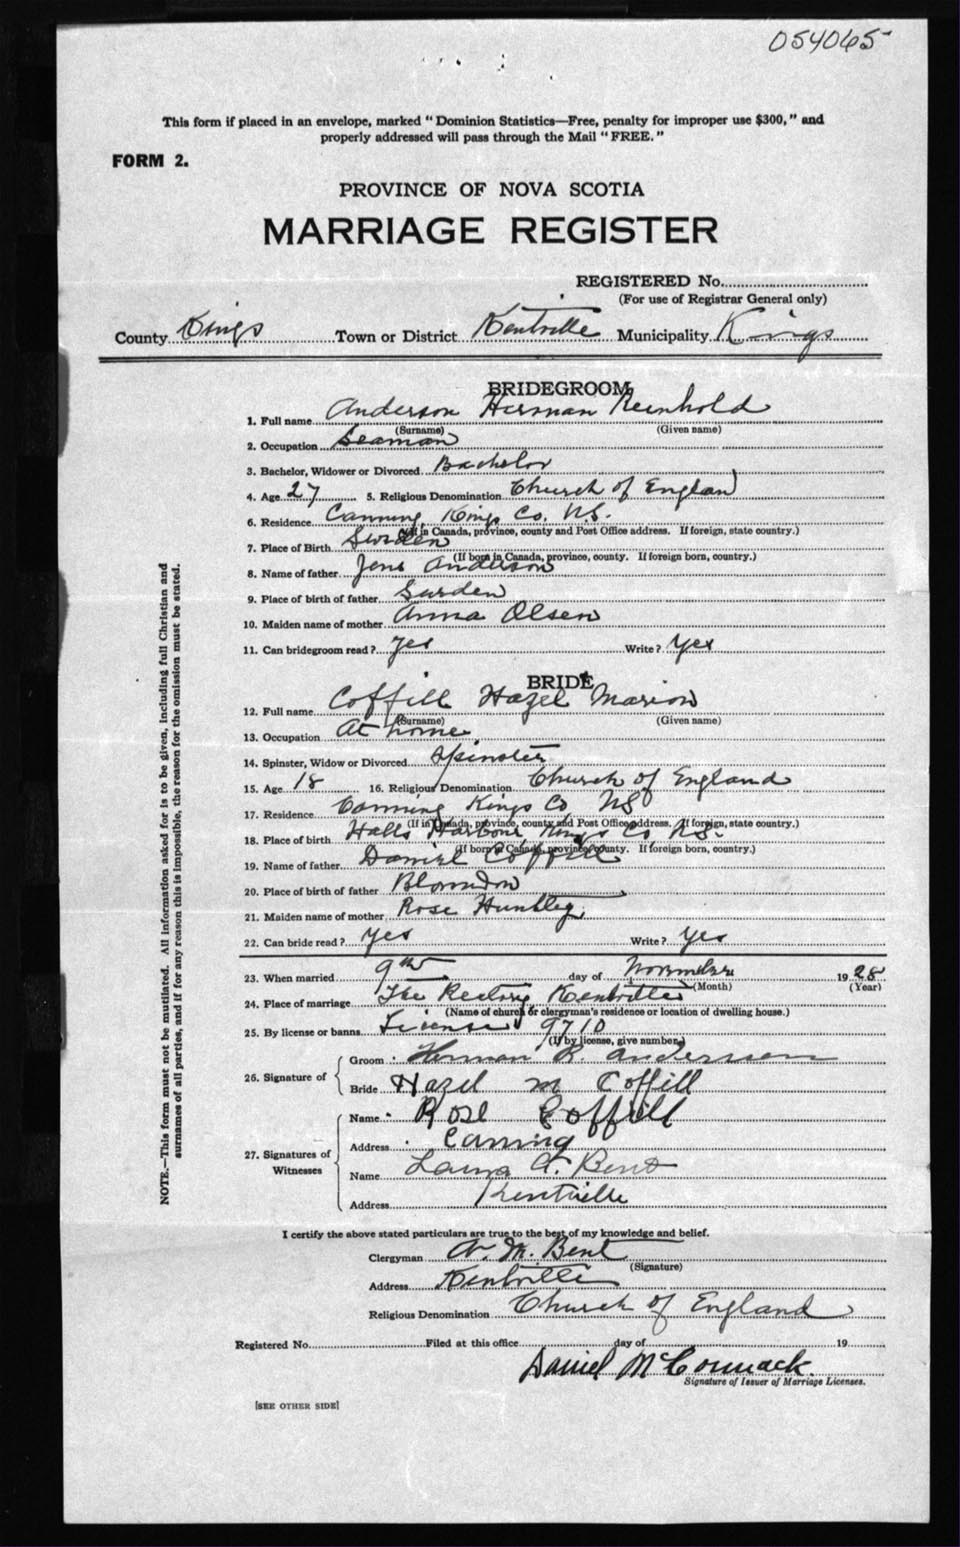 054065
This form if placed in an envelope, marked "Dominion Statistics—Free, penalty for improper use $300," and
properly addressed will pass through the Mail "FREE."
FORM 2.
PROVINCE OF NOVA SCOTIA
MARRIAGE REGISTER
REGISTERED No.
(For use of Registrar General only)
County Kings Town or District Kentville Municipality Kings
BRIDEGROOM
1. Full name Anderson Herman Reinhold
(Surname) (Given name)
2. Occupation Seaman
3. Bachelor, Widower or Divorced Bachelor
4. Age 27 5. Religious Denomination Church of England
6. Residence Canning Kings Co. N.S.
(If in Canada, province, county and Post Office address. If foreign, state country.)
7. Place of Birth Sweden
(If born in Canada, province, county. If foreign born, country.)
8. Name of father Jens Anderson
9. Place of birth of father Sweden
10. Maiden name of mother Anna Olsen
11. Can bridegroom read? Yes Write? Yes
BRIDE
12. Full name Coffill Hazel Marion
(Surname) (Given name)
13. Occupation At home
14. Spinster, Widow or Divorced Spinster
15. Age 18 16. Religious Denomination Church of England
17. Residence Canning Kings Co NS
(If in Canada, province, county and Post Office address. If foreign, state country.)
18. Place of birth Halls Harbour Kings Co. N.S.
(If born in Canada, province, county. If foreign born, country.)
19. Name of father Daniel Coffill
20. Place of birth of father Blomidon
21. Maiden name of mother Rose Huntley
22. Can bride read? Yes Write? Yes
23. When married 9th day of November 1928
(Month) (Year)
24. Place of marriage The Rectory Kentville
(Name of church or clergyman's residence or location of dwelling house.)
25. By license or banns License 9710
(If by license, give number.)
26. Signature of
Groom Herman R. Anderson
Bride Hazel M Coffill
27. Signatures of Witnesses
Name Rose Coffill
Address Canning
Name Laura A. Bent
Address Kentville
I certify the above stated particulars are true to the best of my knowledge and belief.
Clergyman A. M. Bent
(Signature)
Address Kentville
Religious Denomination Church of England
Registered No. Filed at this office day of 19
Daniel McCormack
Signature of Issuer of Marriage Licenses.
[SEE OTHER SIDE]
NOTE.—This form must not be mutilated. All information asked for is to be given, including full Christian and
surnames of all parties, and if for any reason this is impossible, the reason for the omission must be stated.